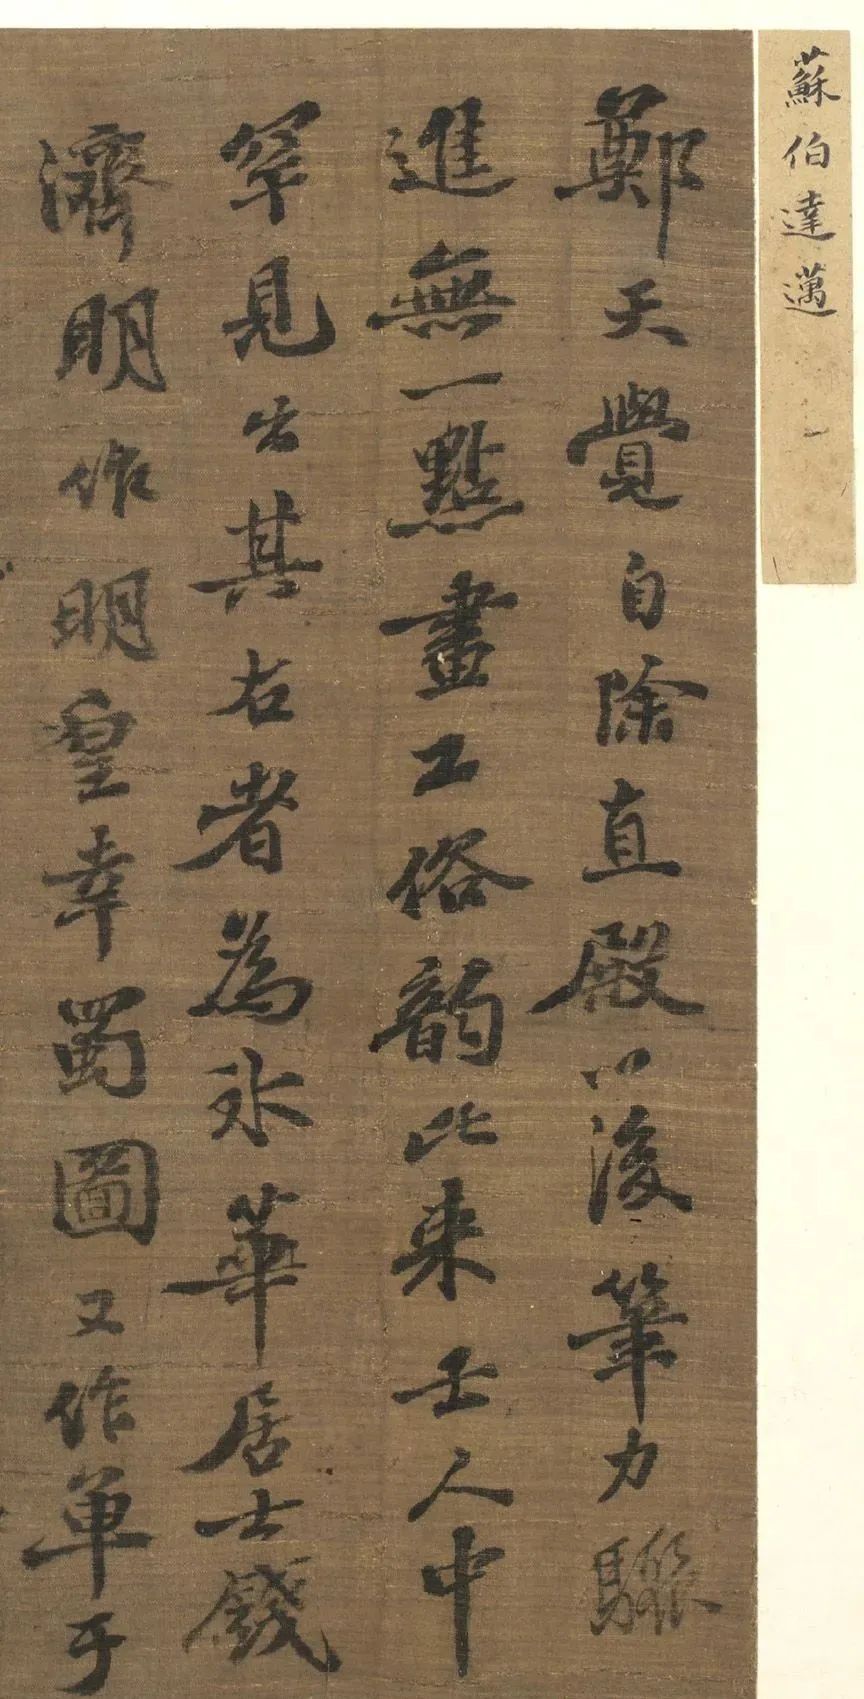 蘇伯達邁
鄭天覺自除直殿以後筆力驟
進無一點畫工俗韵比来士人中
罕見出其右者為冰華居士錢
濟明作明皇幸蜀圖又作單于